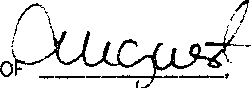 OF August